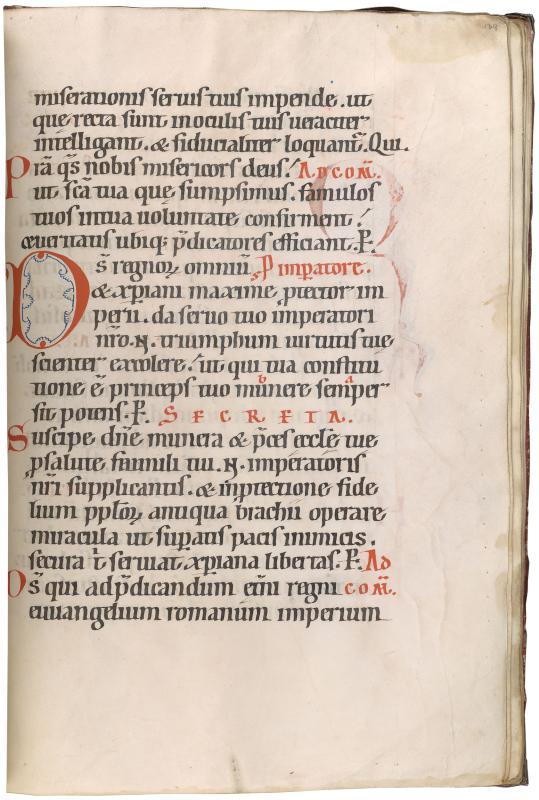 miserationis seruis tuis impende. ut
que recta sunt in oculis tuis ueraciter
intelligant. & fiducialiter loquant̄. Qui.
Prā q̄s nobis misericors deus! AD COM̄.
ut scā tua que sumpsimus. famulos
tuos in tua uoluntate confirment!
& ueritatis ubiq; p̄dicatores efficiant. P.
Ds̄ regnoꝝ omniū P impatore.
& xp̄iani maxime ꝓtector im
perii. da seruo tuo imperatori
nr̄o .N. triumphum uirtutis tue
scienter excolere! ut qui tua constitu
tione ē princeps tuo munere semper
sit potens. P. SECRETA.
Suscipe dn̄e munera & p̄ces eccłe tue
ꝓ salute famuli tui .N. imperatoris
nr̄i supplicantis. & in ꝓtectione fide
lium ppl̄oꝝ antiqua brachii operare
miracula ut supatis pacis inimicis.
secura t̄ seruiat xp̄iana libertas. P. AD
Ds̄ qui ad p̄dicandum etn̄i regni COM̄.
euuangelium romanum imperium